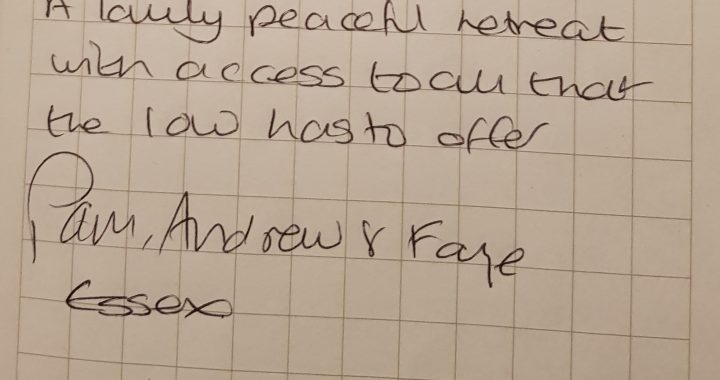 A lovely peaceful retreat
with access to all that
the IOW has to offer
Pam, Andrew & Faye
Essex